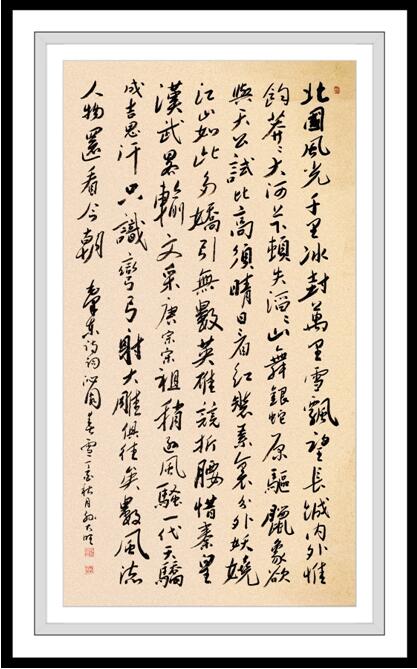 北國風光千里冰封萬里雪飄望長城内外惟
餘莽々大河上下頓失滔々山舞銀蛇原驅蠟象欲
與天公試比高須晴日看紅裝素裹分外妖嬈
江山如此多嬌引無數英雄競折腰惜秦皇
漢武略輸文采唐宗宋祖稍遜風騷一代天驕
成吉思汗只識彎弓射大雕俱往矣數風流
人物還看今朝
东诗词沁园春雪 秋月